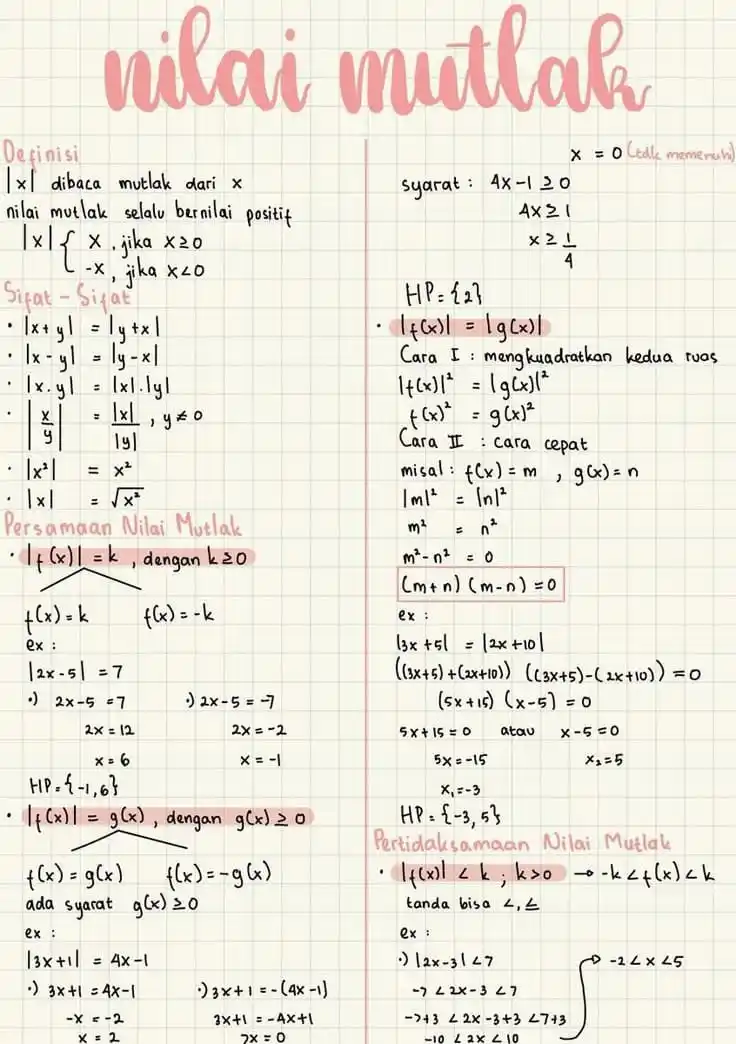 nilai mutlak
Definisi
|x| dibaca mutlak dari x
nilai mutlak selalu bernilai positif
|x| { x , jika x≥0
-x, jika x<0
Sifat - Sifat
• |x+y| = |y+x|
• |x-y| = |y-x|
• |x.y| = |x|.|y|
• |x/y| = |x|/|y| , y≠0
• |x²| = x²
• |x| = √x²
Persamaan Nilai Mutlak
• |f(x)| = k , dengan k≥0
f(x) = k f(x) = -k
ex :
|2x-5| = 7
•) 2x-5 = 7 •) 2x-5 = -7
2x = 12 2x = -2
x = 6 x = -1
HP = {-1,6}
• |f(x)| = g(x), dengan g(x) ≥ 0
f(x) = g(x) f(x) = -g(x)
ada syarat g(x) ≥0
ex :
|3x+1| = 4x-1
•) 3x+1 = 4x-1 •) 3x+1 = -(4x-1)
-x = -2 3x+1 = -4x+1
x = 2 7x = 0
x = 0 (tdk memenuhi)
syarat : 4x-1 ≥0
4x ≥ 1
x ≥ 1/4
HP = {2}
• |f(x)| = |g(x)|
Cara I : mengkuadratkan kedua ruas
|f(x)|² = |g(x)|²
f(x)² = g(x)²
Cara II : cara cepat
misal : f(x) = m , g(x) = n
|m|² = |n|²
m² = n²
m²-n² = 0
(m+n) (m-n) = 0
ex :
|3x+5| = |2x+10|
((3x+5)+(2x+10)) ((3x+5)-(2x+10)) = 0
(5x+15) (x-5) = 0
5x+15 = 0 atau x-5 = 0
5x = -15 x₂ = 5
x₁ = -3
HP = {-3, 5}
Pertidaksamaan Nilai Mutlak
• |f(x)| < k ; k>0 → -k < f(x) < k
tanda bisa <, ≤
ex :
•) |2x-3| < 7 → -2 < x < 5
-7 < 2x-3 < 7
-7+3 < 2x-3+3 < 7+3
-10 < 2x < 10